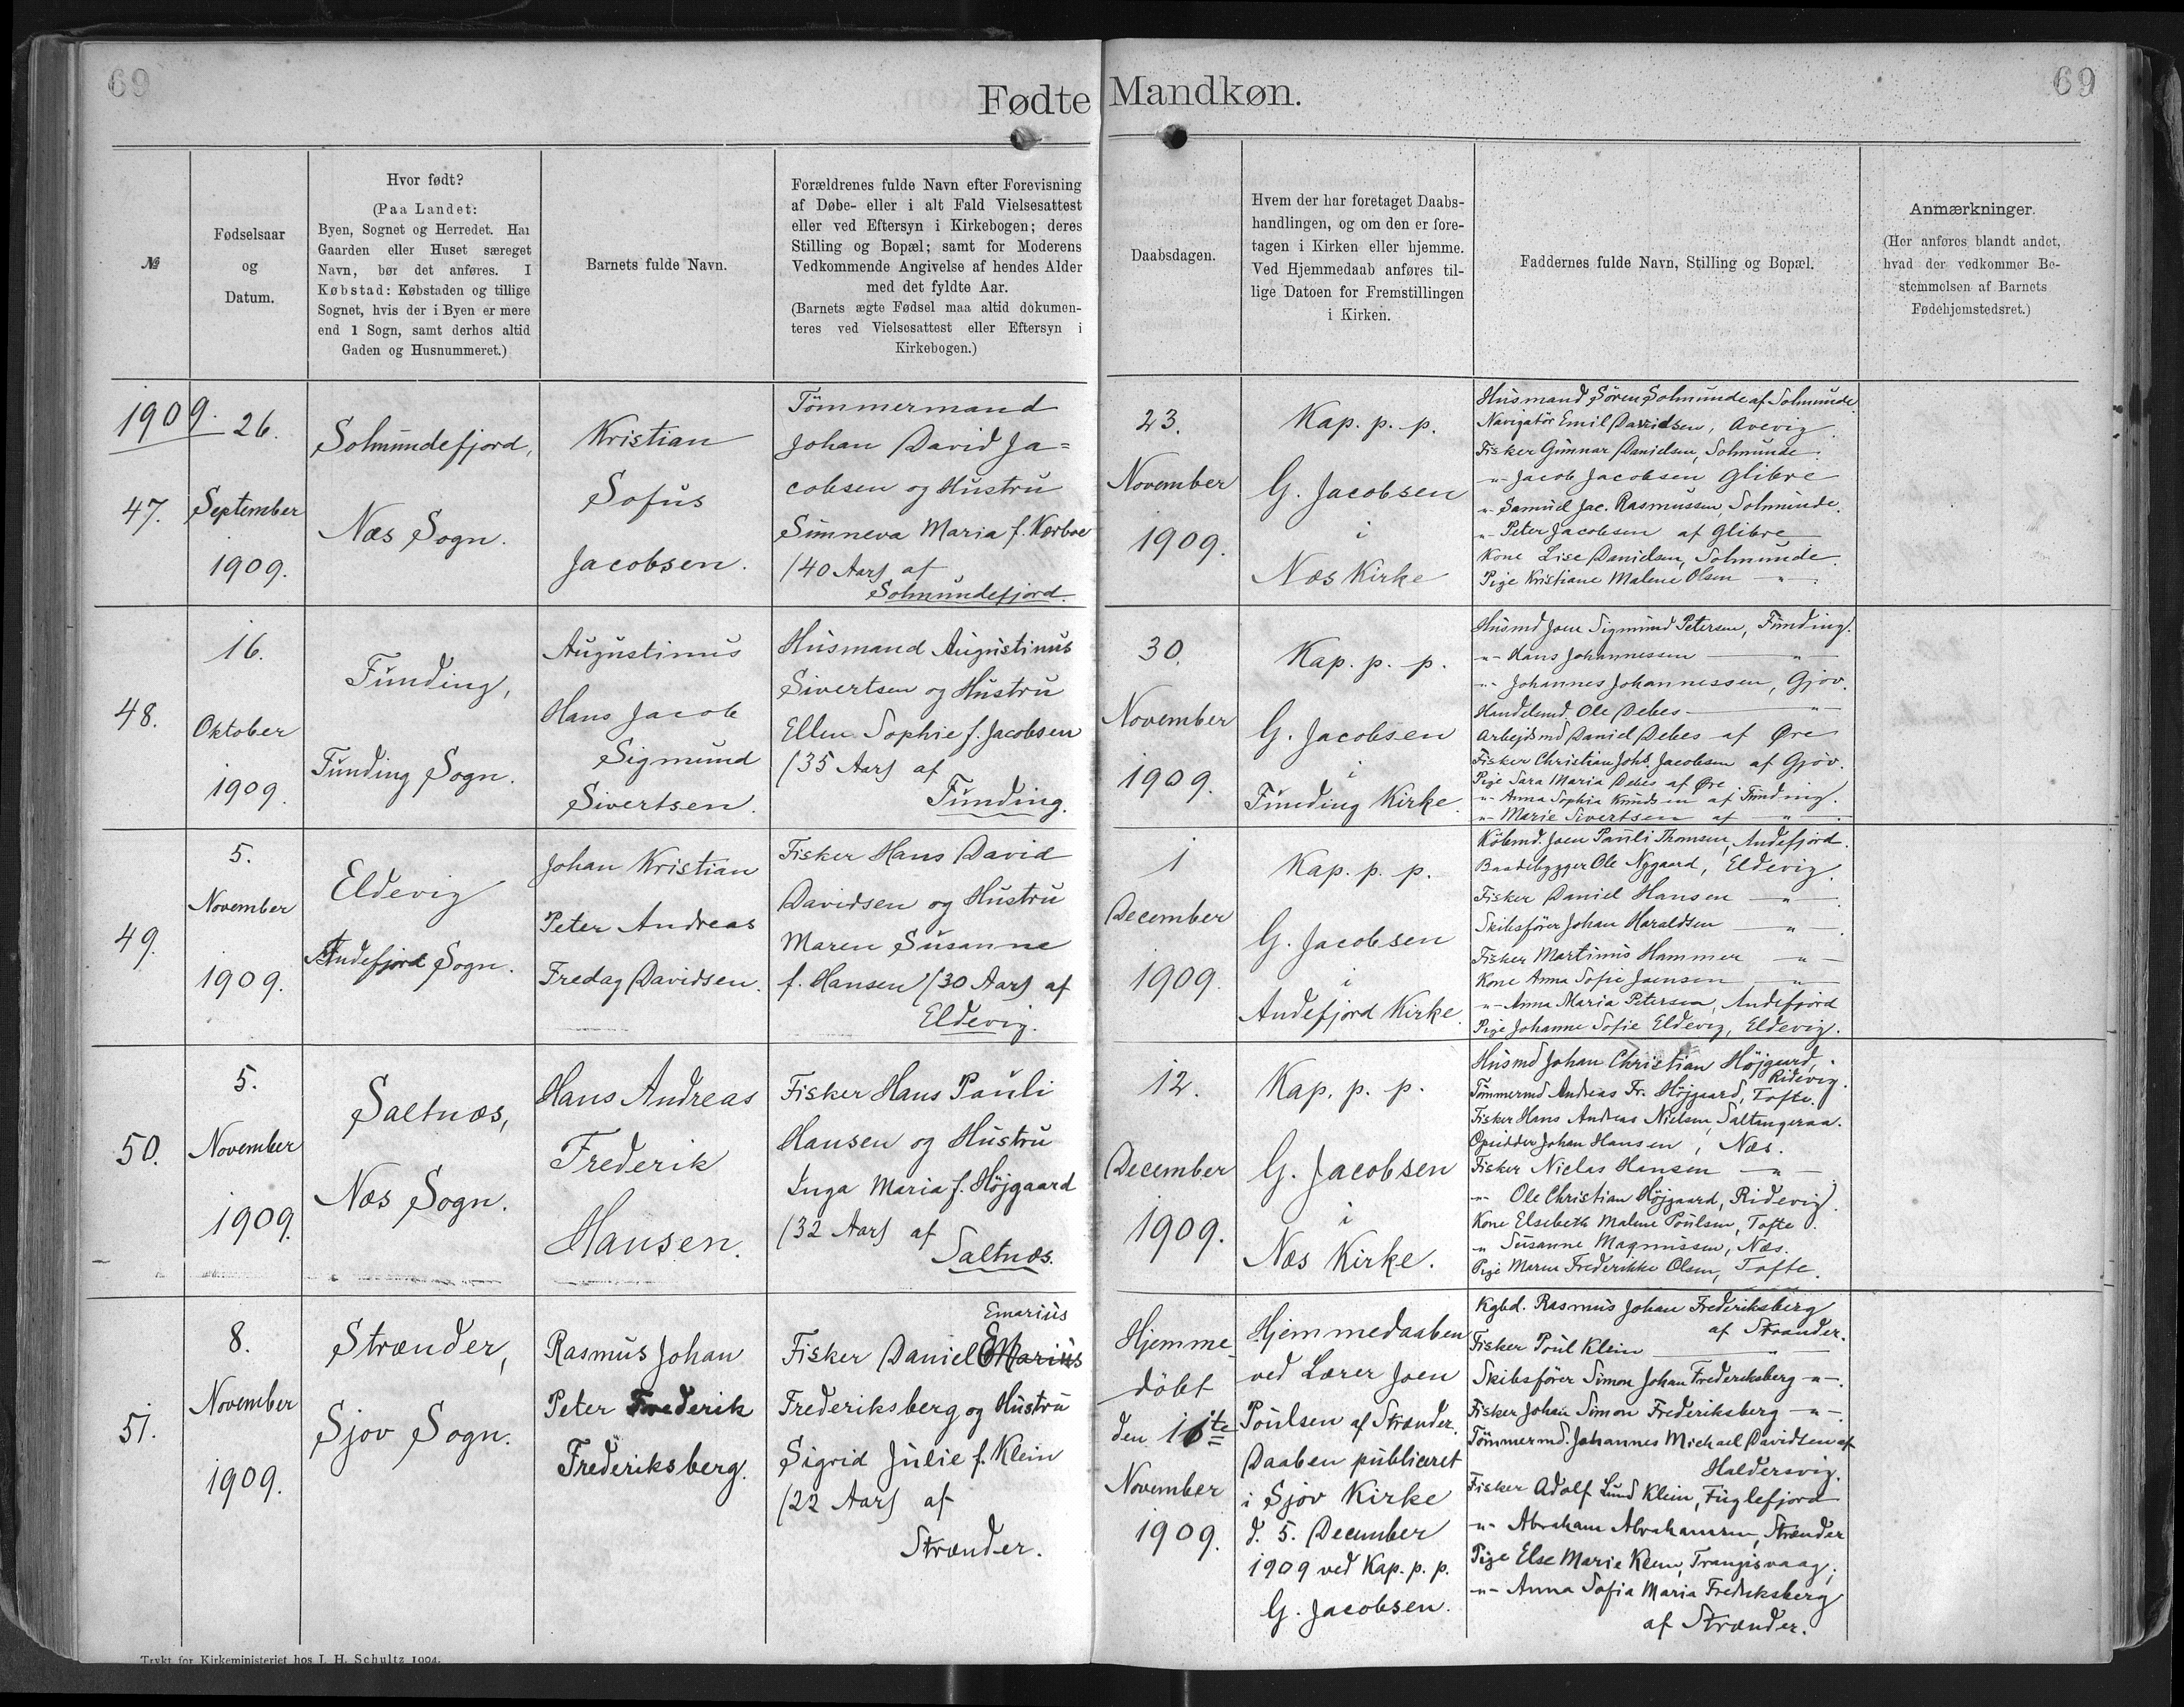 69
Fødte Mandkøn.
69
№
Fødselsaar
og
Datum.
Hvor født?
(Paa Landet:
Byen, Sognet og Herredet. Har
Gaarden eller Huset særeget
Navn, bør det anføres. I
Købstad: Købstaden og tillige
Sognet, hvis der i Byen er mere
end 1 Sogn, samt derhos altid
Gaden og Husnummeret.)
Barnets fulde Navn.
Forældrenes fulde Navn efter Forevisning
af Døbe- eller i alt Fald Vielsesattest
eller ved Eftersyn i Kirkebogen; deres
Stilling og Bopæl; samt for Moderens
Vedkommende Angivelse af hendes Alder
med det fyldte Aar.
(Barnets ægte Fødsel maa altid dokumen-
teres ved Vielsesattest eller Eftersyn i
Kirkebogen.)
Daabsdagen.
Hvem der har foretaget Daabs-
handlingen, og om den er fore-
tagen i Kirken eller hjemme.
Ved Hjemmedaab anføres til-
lige Datoen for Fremstillingen
i Kirken.
Faddernes fulde Navn, Stilling og Bopæl.
Anmærkninger.
(Her anføres blandt andet,
hvad der vedkommer Be-
stemmelsen af Barnets
Fødehjemstedsret.)
1909.
47.
26.
September
1909.
Solmundefjord,
Næs Sogn.
Kristian
Sofus
Jacobsen.
Tömmermand
Johan David Ja=
cobsen og Hustru
Sunneva Maria f. Kærboe
/40 Aar/ af
Solmundefjord.
23.
November
1909.
Kap. p. p.
G. Jacobsen
i
Næs Kirke
Husmand Sören Solmunde af Solmunde.
Navigatör Emil Davidsen, Avevig.
Fisker Gunnar Danielsen, Solmunde.
-"- Jacob Jacobsen Glibre
-"- Samuel Jac. Rasmussen, Solmunde.
-"- Peter Jacobsen af Glibre
Kone Lise Danielsen, Solmunde.
Pige Kristiane Malene Olsen -"-.
48.
16.
Oktober
1909.
Funding,
Funding Sogn.
Augustinus
Hans Jacob
Sigmund
Sivertsen.
Husmand Augustinus
Sivertsen og Hustru
Ellen Sophie f. Jacobsen
/35 Aar/ af
Funding.
30.
November
1909.
Kap. p. p.
G. Jacobsen
i
Funding Kirke.
Husmd Joen Sigmund Petersen, Funding.
-"- Hans Johannessen -"-
-"- Johannes Johannessen, Gjov.
Handelsmd. Ole Debes -"-
Arbejdsmd Daniel Debes af Øre
Fisker Christian Johs. Jacobsen af Gjov.
Pige Sara Maria Debes af Øre
-"- Anna Sophia Knudsen af Funding.
-"- Marie Sivertsen af -"-
49.
5.
November
1909.
Eldevig
Andefjord Sogn.
Johan Kristian
Peter Andreas
Fredag Davidsen.
Fisker Hans David
Davidsen og Hustru
Maren Susanne
f. Hansen /30 Aar/ af
Eldevig.
1
December
1909.
Kap. p. p.
G. Jacobsen
i
Andefjord Kirke.
Köbmd. Joen Pauli Thomsen, Andefjord.
Baadebygger Ole Nygaard, Eldevig.
Fisker Daniel Hansen -"-.
Skibsförer Johan Haraldsen -"-.
Fisker Martinus Hammer -"-
Kone Anna Sofie Joensen -"-
-"- Anna Maria Petersen, Andefjord
Pige Johanne Sofie Eldevig, Eldevig.
50.
5.
November
1909.
Saltnæs,
Næs Sogn.
Hans Andreas
Frederik
Hansen.
Fisker Hans Pauli
Hansen og Hustru
Inga Maria f. Höjgaard
/32 Aar/ af
Saltnæs.
12.
December
1909.
Kap. p. p.
G. Jacobsen
i
Næs Kirke.
Husmd Johan Christian Höjgaard,
Ridevig.
Tömmermd Andreas Fr. Höjgaard, Tofte.
Fisker Hans Andreas Nielsen, Saltangeraa.
Opsidder Johan Hansen, Næs.
Fisker Niclas Hansen -"-
-"- Ole Christian Höjgaard, Ridevig.
Kone Elsebeth Malene Poulsen, Tofte.
-"- Susanne Magnussen, Næs.
Pige Maren Frederikke Olsen, Tofte.
51.
8.
November
1909.
Strænder,
Sjov Sogn.
Rasmus Johan
Peter Frederik
Frederiksberg.
Emarius
Fisker Daniel EMarius
Frederiksberg og Hustru
Sigrid Julie f. Klein
/22 Aar/ af
Strænder.
Hjemme
döbt
den 16te
November
1909.
Hjemmedaaben
ved Lærer Joen
Poulsen af Strænder.
Daaben publiceret
i Sjov Kirke
d. 5. December
1909 ved Kap. p. p.
G. Jacobsen.
Kgbd. Rasmus Johan Frederiksberg
af Strænder.
Fisker Poul Klein -"-
Skibsförer Simon Johan Frederiksberg -"-.
Fisker Johan Simon Frederiksberg -"-.
Tömmermd. Johannes Michael Davidsen af
Haldersvig.
Fisker Adolf Lund Klein, Fuglefjord
-"- Abraham Abrahamsen, Strænder
Pige Else Marie Klein, Trangisvaag,
-"- Anna Sofia Maria Frederiksberg
af Strænder.
Trykt for Kirkeministeriet hos J. H. Schultz 1904.